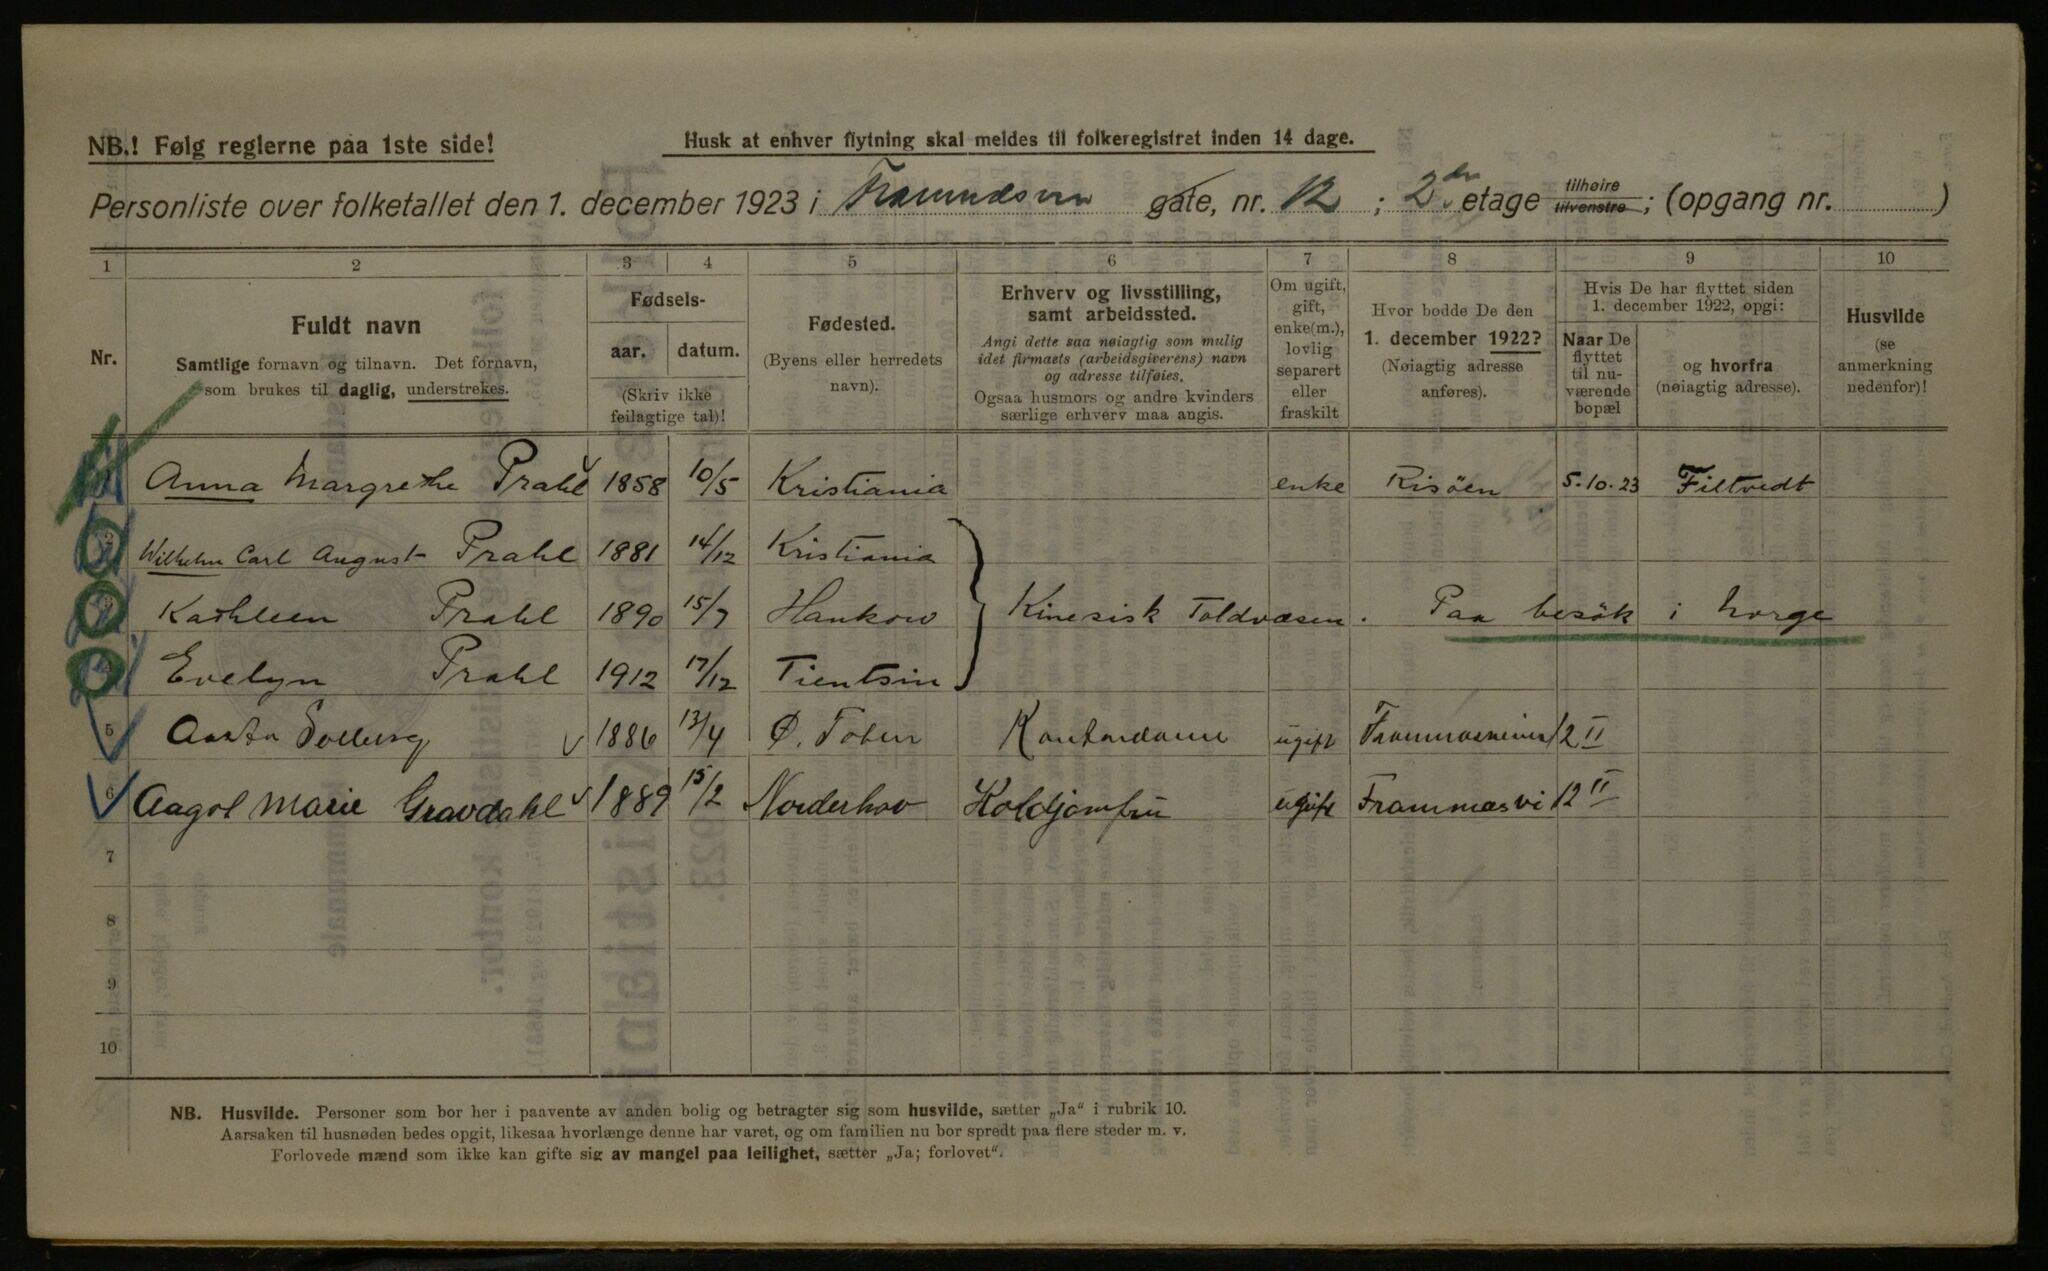 NB.! Følg reglerne paa 1ste side!
Husk at enhver flytning skal meldes til folkeregistret inden 14 dage.
Personliste over folketallet den 1. december 1923 i gate, nr. 12 ; 2den etage tilhøire tilvenstre ; (opgang nr. )
1 2 3 4 5 6 7 8 9 10
Nr.
Fuldt navn
Samtlige fornavn og tilnavn. Det fornavn,
som brukes til daglig, understrekes.
Fødsels-
aar. datum.
(Skriv ikke
feilagtige tal)!
Fødested.
(Byens eller herredets
navn).
Erhverv og livsstilling,
samt arbeidssted.
Angi dette saa nøiagtig som mulig
idet firmaets (arbeidsgiverens) navn
og adresse tilføies.
Ogsaa husmors og andre kvinders
særlige erhverv maa angis.
Om ugift,
gift,
enke(m.),
lovlig
separert
eller
fraskilt
Hvor bodde De den
1. december 1922?
(Nøiagtig adresse
anføres).
Hvis De har flyttet siden
1. december 1922, opgi:
Naar De
flyttet
til nu-
værende
bopæl
og hvorfra
(nøiagtig adresse).
Husvilde
(se
anmerkning
nedenfor)!
1 Anna Margrethe Prahl 1858 10/5 Kristiania enke Risöen 5.10.23 Filtvedt
2 Wilhelm Carl August Prahl 1881 14/12 Kristiania
3 Kathleen Prahl 1890 15/7 Hankow Kinesisk Toldvæsen. Paa besök i Norge
4 Evelyn Prahl 1912 17/12 Tientsin
5 Aasta Solberg 1886 13/4 Ø. Toten Kontordame ugift 12 II
6 Aagot Marie Gravdahl 1889 15/2 Norderhov Koldjomfru ugift Frammæsvi 12 II
7
8
9
10
NB. Husvilde. Personer som bor her i paavente av anden bolig og betragter sig som husvilde, sætter „Ja“ i rubrik 10.
Aarsaken til husnøden bedes opgit, likesaa hvorlænge denne har varet, og om familien nu bor spredt paa flere steder m. v.
Forlovede mænd som ikke kan gifte sig av mangel paa leilighet, sætter „Ja; forlovet“.